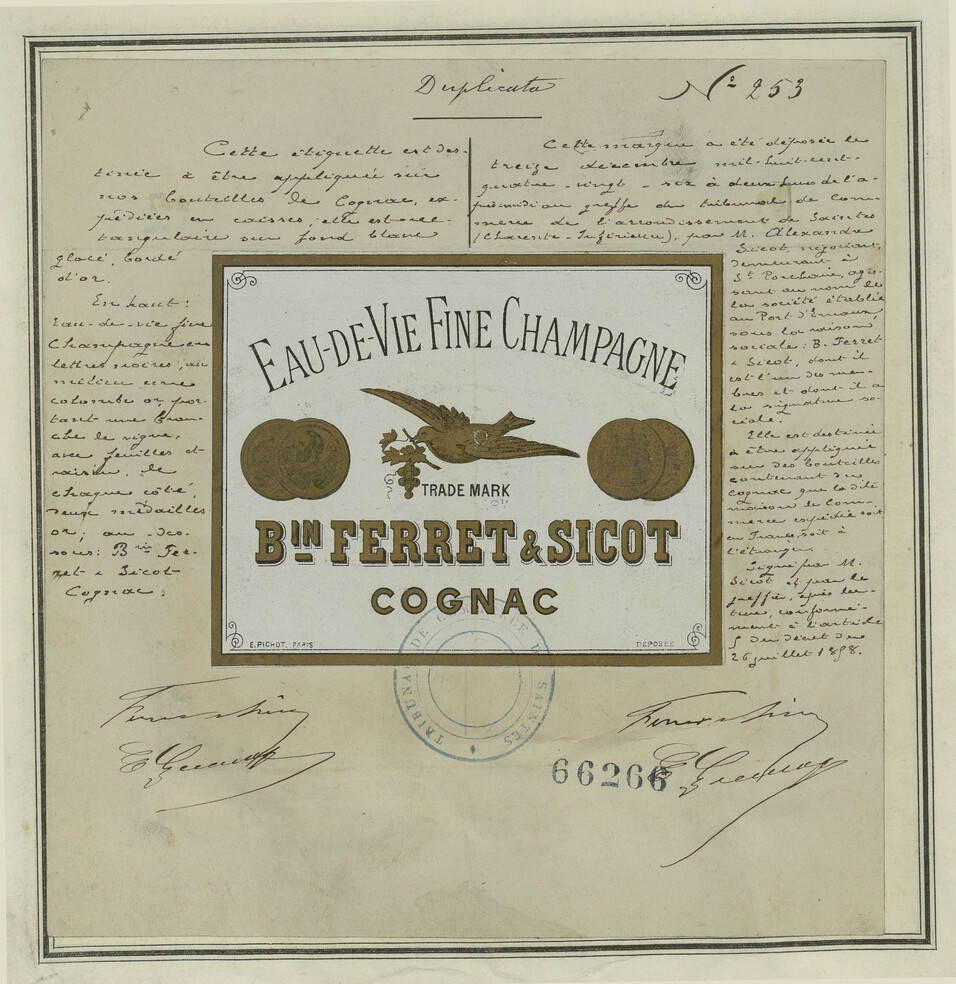 Duplicata
N° 253
Cette étiquette est des-
tinée à être appliquée sur
nos bouteilles de Cognac, ex-
pédiées en caisses; elle est rec-
tangulaire sur fond blanc
glacé, bordé
d'or.
En haut:
Eau-de-vie fine
Champagne en
lettres noires, au
milieu une
colombe or, por-
tant une bran-
che de vigne,
avec feuilles et
raisin, de
chaque côté,
deux médailles
or; au-des-
sous: Bin Fer-
ret & Sicot
Cognac.
Cette marque a été déposée le
treize décembre mil-huit-cent-
quatre-vingt-six à deux heures de l'a-
près-midi au greffe du tribunal de Com-
merce de l'arrondissement de Saintes
(Charente-Inférieure), par M. Alexandre
Sicot, négociant,
demeurant à
St Porchaire, agis-
sant au nom de
la société établie
au Port d'Envaux,
sous la raison
sociale: B. Ferret
& Sicot, dont il
est l'un des mem-
bres et dont il a
la signature so-
ciale.
Elle est destinée
à être appliquée
sur des bouteilles
contenant du
cognac que la dite
maison de Com-
merce expédie soit
en France, soit à
l'étranger.
Signé par M.
Sicot et par le
greffier, après lec-
ture, conformé-
ment à l'article
5 du décret du
26 juillet 1858.
EAU-DE-VIE FINE CHAMPAGNE
TRADE MARK
BIN FERRET & SICOT
COGNAC
E. PICHOT. PARIS
DÉPOSÉE
TRIBUNAL DE COMMERCE DE SAINTES
66266